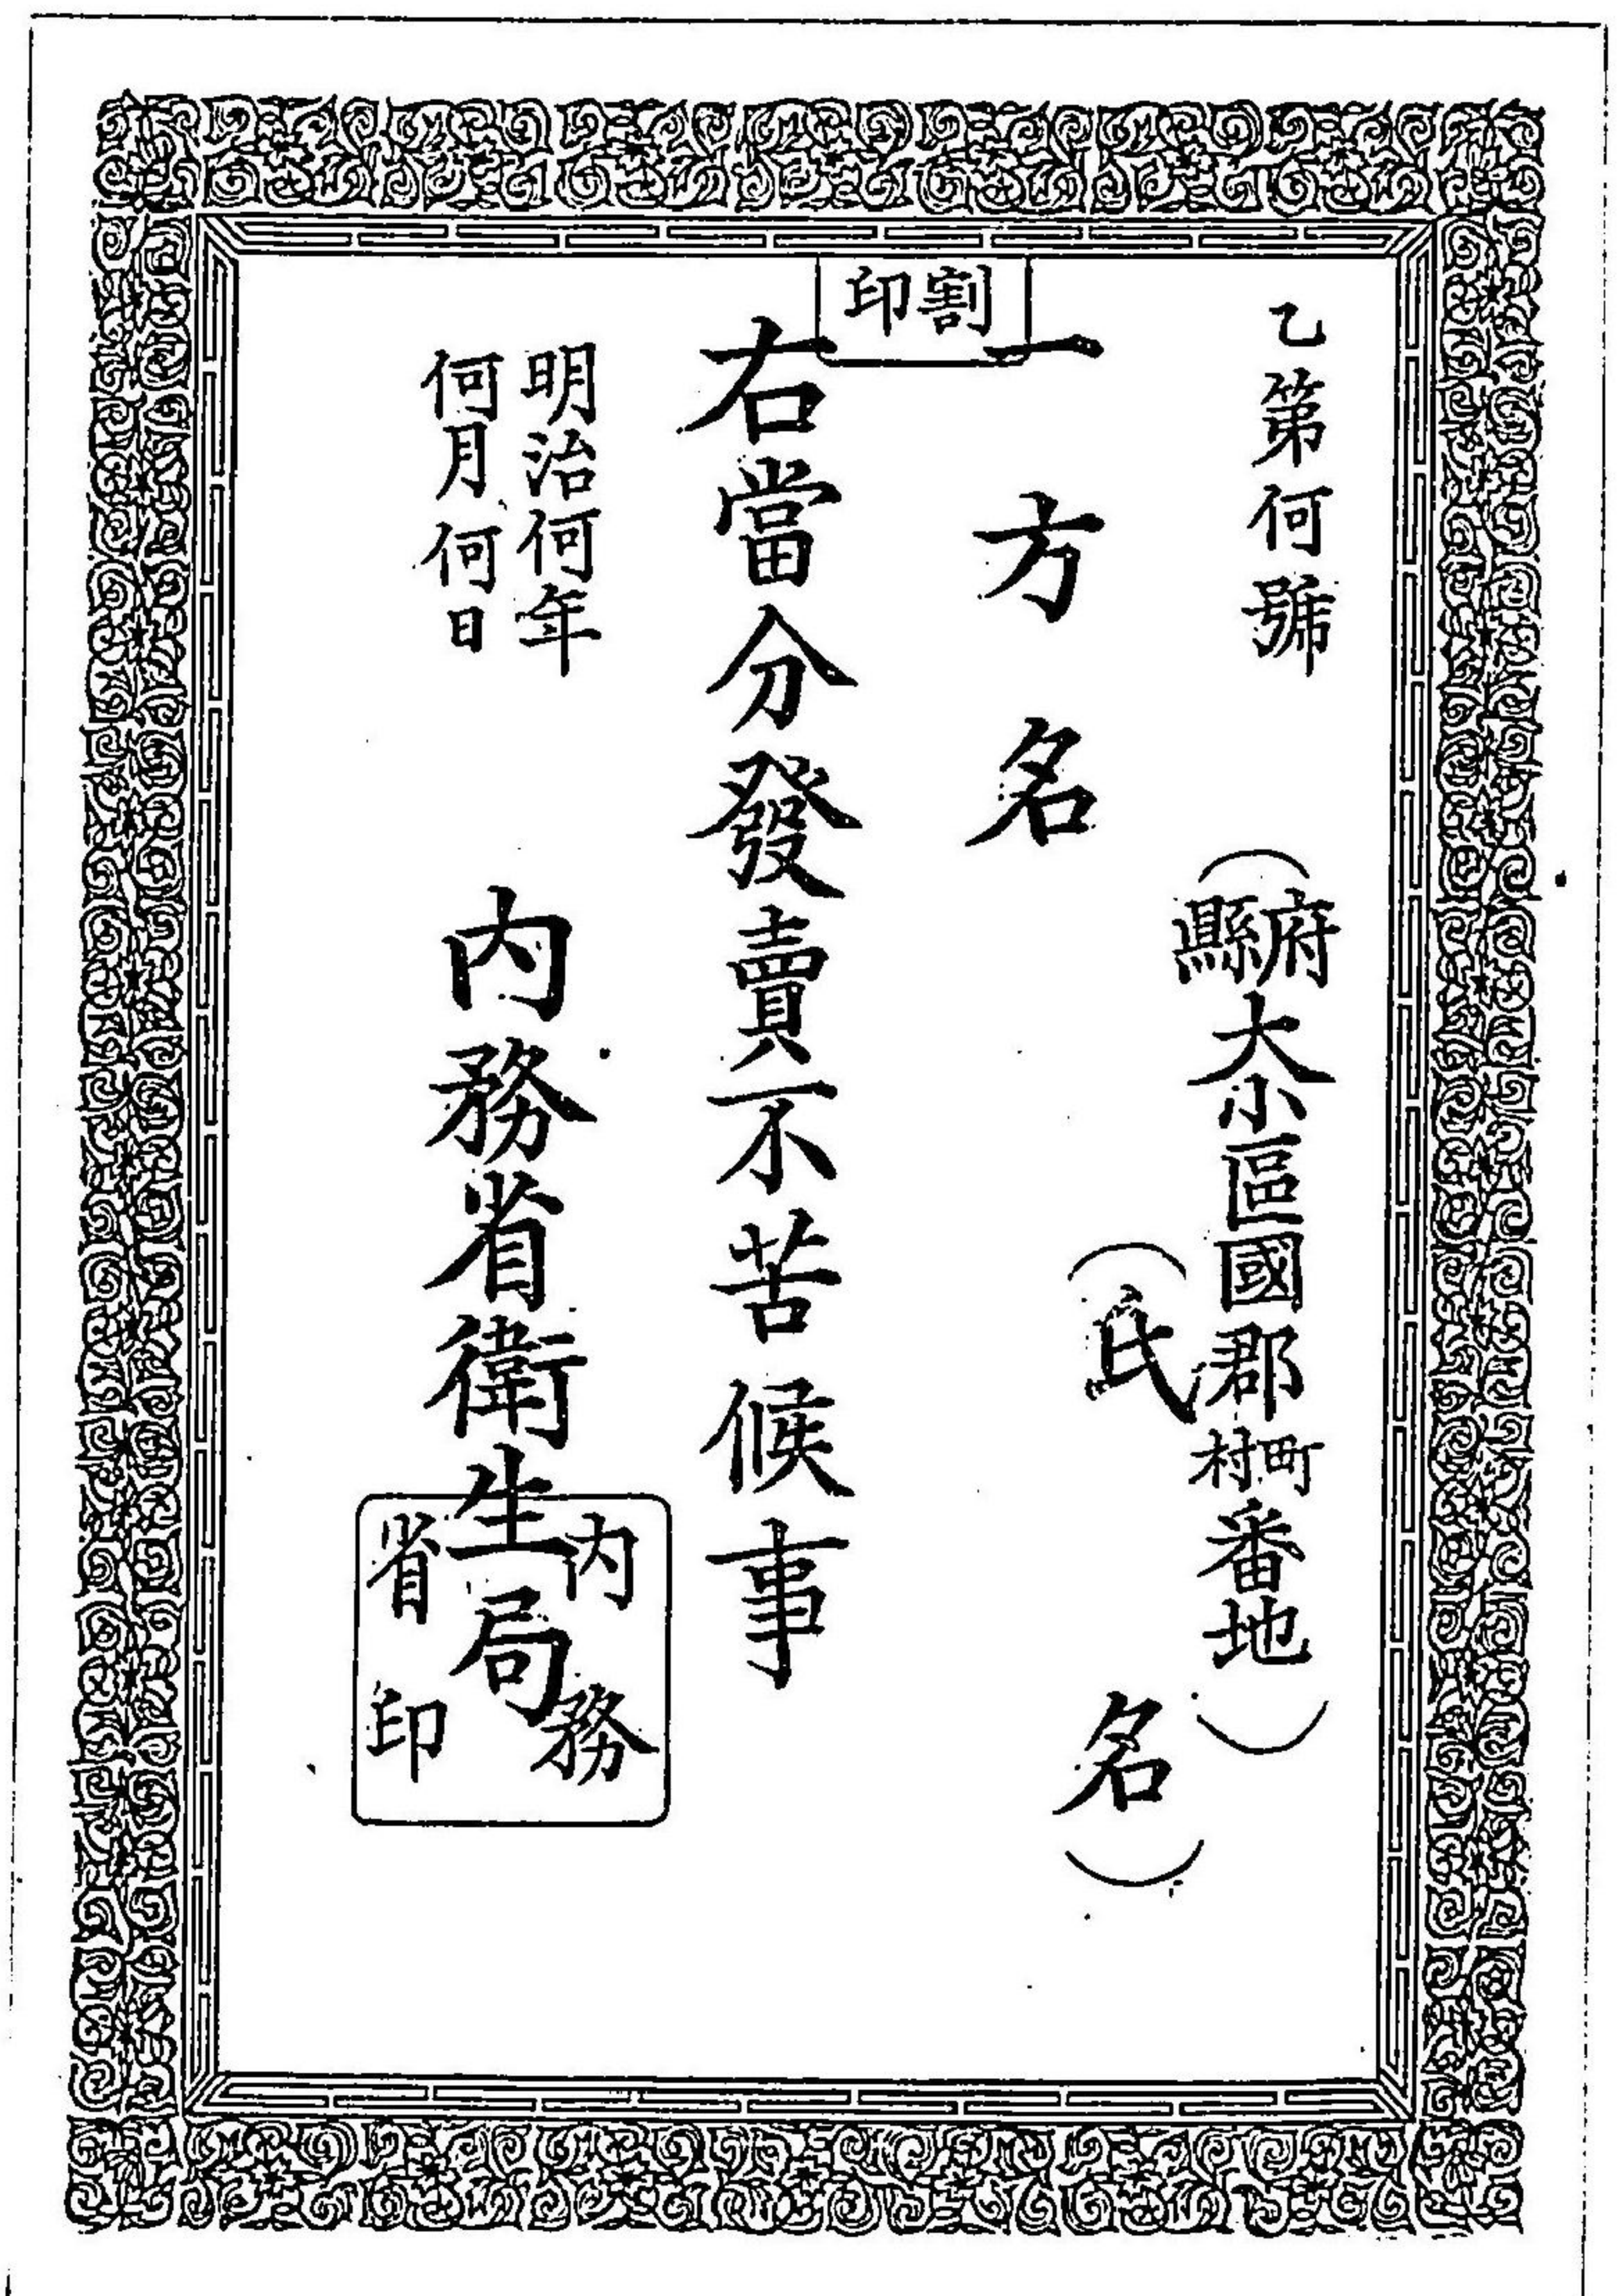 乙第何號
（府縣大小區國郡町村番地）
（氏名）
割印
一方名
右當分發賣不苦候事
明治何年
何月何日
內務省衛生局
內務
省印